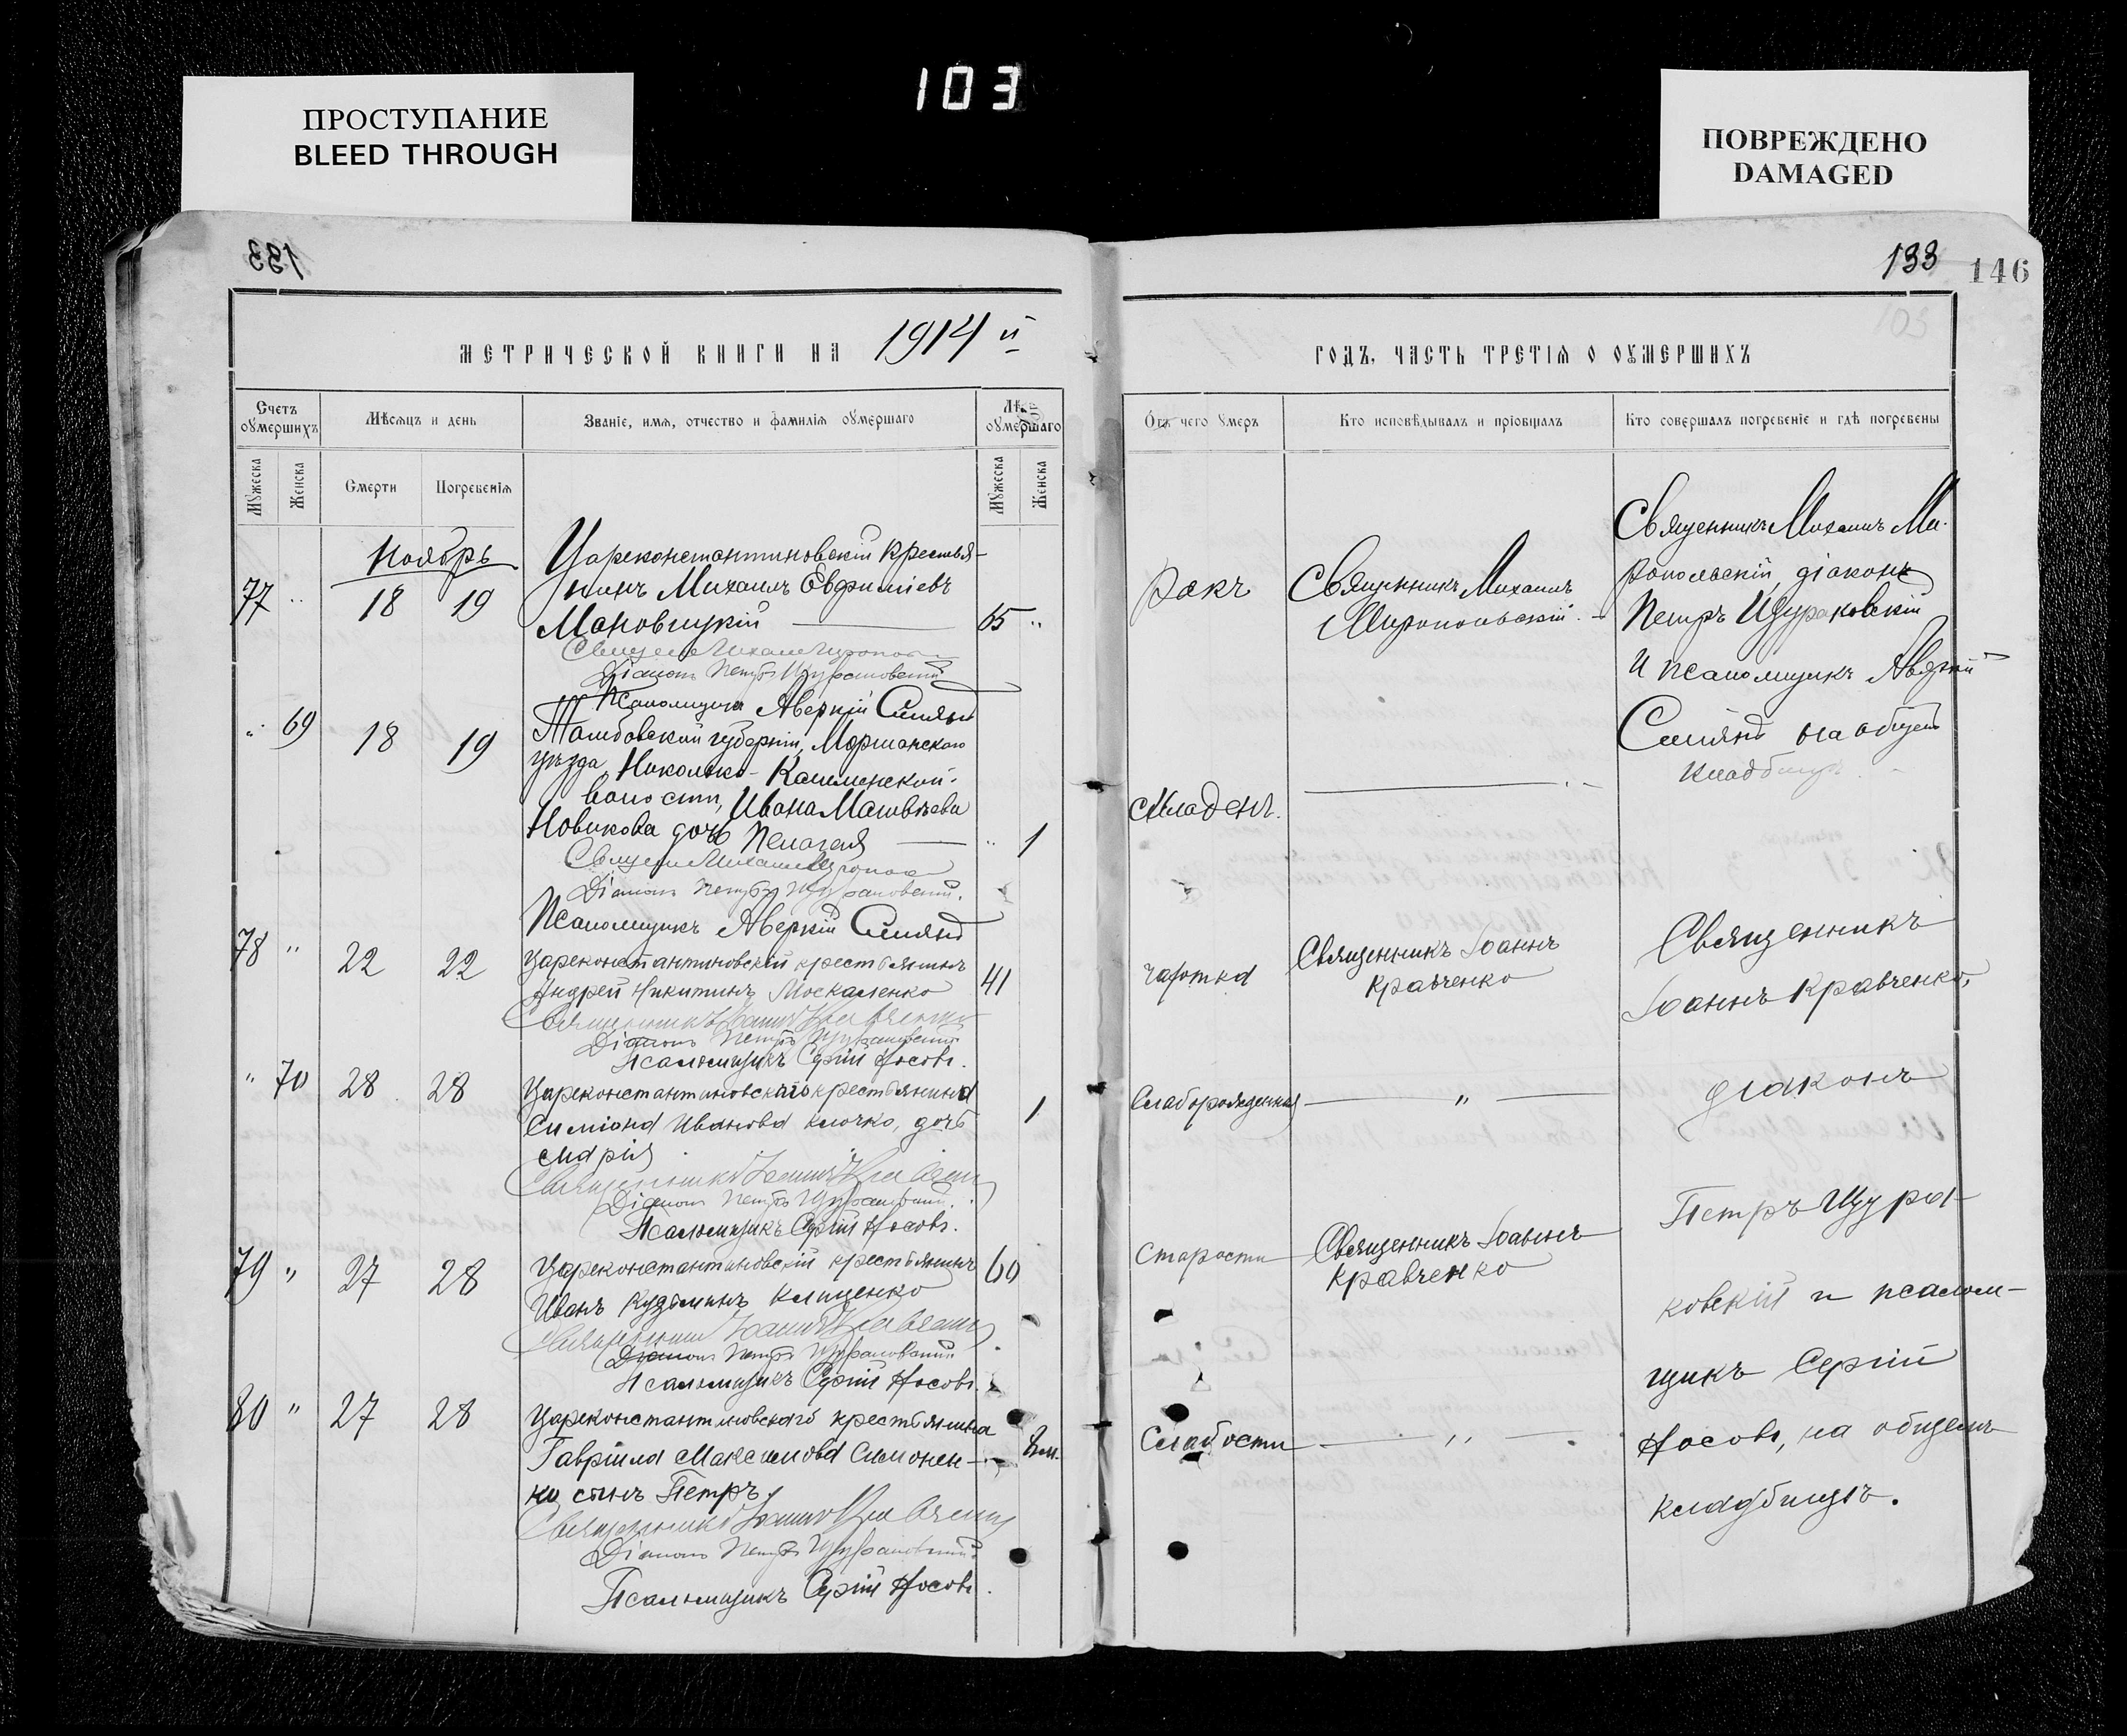 103
ПРОСТУПАНИЕ
BLEED THROUGH
ПОВРЕЖДЕНО
DAMAGED
133
146
МЕТРИЧЕСКОЙ КНИГИ НА 1914 й
Счетъ оумершихъ
Мѣсяцъ и день
Званіе, имя, отчество и фамилія оумершаго
Лѣ оумершаго
Мужеска
Женска
Смерти
Погребенія
Мужеска
Женска
Ноябрь
77 " 18 19
Цареконстантиновскій крестья-
нинъ Михаилъ Евфиміевъ
Мановицкій 65 "
Діаконъ Петръ Щураковскій
Псаломщикъ Аверкій
" 69 18 19
Тамбовской губерніи, Моршанского
уѣзда, Никольско-
волости, Ивана Матвѣева
Новикова дочь Пелагея " 1
Діаконъ Петръ Щураковскій.
Псаломщикъ Аверкій
78 " 22 22
Цареконстантиновскій крестьянинъ
Андрей Никитинъ Москаленко 41
Священникъ Іоаннъ Кравченко
Діаконъ Петръ Щураковскій
Псаломщикъ Сергій Носовъ.
" 70 28 28
Цареконстантиновскаго крестьянина
Симіона Иванова Клочко, дочь 1
Марія
Священникъ Іоаннъ Кравченко
Діаконъ Петръ Щураковскій.
Псаломщикъ Сергій Носовъ.
79 " 27 28
Цареконстантиновскій крестьянинъ 60
Иванъ Кузьминъ Клищенко
Священникъ Іоаннъ Кравченко
Діаконъ Петръ Щураковскій
Псаломщикъ СергійНосовъ.
80 " 27 28
Цареконстантиновскаго крестьянина
Гавріила Максимова Симонен- 8м.
ко сынъ Петръ
Священникъ Іоаннъ Кравченко
Діаконъ Петръ Щураковскій
Псаломщикъ Сергій Носовъ.
ГОДЪ, ЧАСТЬ ТРЕТІЯ О ОУМЕРШИХЪ
Отъ чего умеръ
Кто исповѣдывалъ и пріобщалъ
Кто совершалъ погребеніе и гдѣ погребены
Ракъ
Священникъ Михаилъ
Миропольскій
Священникъ Михаилъ Ми-
ропольскій, діаконъ
Петръ Щураковскій
и псаломщикъ Аверкій
на общемъ
кладбищѣ
Младен.
чахотка
Священникъ Іоаннъ
Кравченко
Священникъ
Іоаннъ Кравченко,
Слаборожденія "
діаконъ
Старости
Священникъ Іоаннъ
Кравченко
Петръ Щура-
ковскій и псалом-
щикъ Сергій
Слабости "
Носовъ, на общемъ
кладбищѣ.